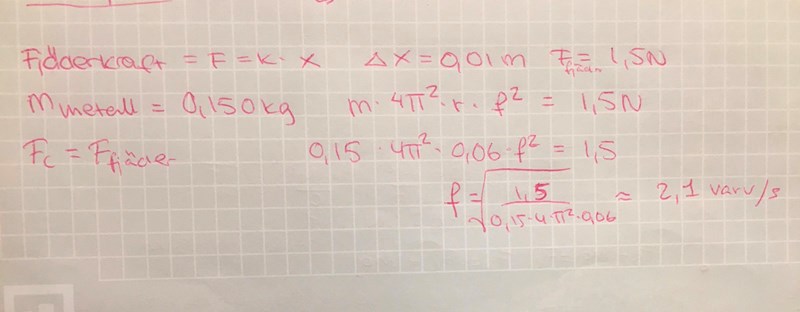 Fjäderkraft = F = K · x    Δx = 0,01 m    F fjäder = 1,5N
m metall = 0,150 kg    m · 4π² · r · f² = 1,5 N
Fc = F fjäder    0,15 · 4π² · 0,06 · f² = 1,5
f = √(1,5 / 0,15·4·π²·0,06) ≈ 2,1 varv/s